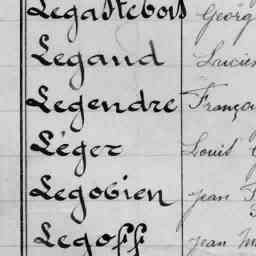 Legastebois Georg
Legand Lucien
Legendre Franço
Léger Louis
Legovien Jean
Legoff Jean M